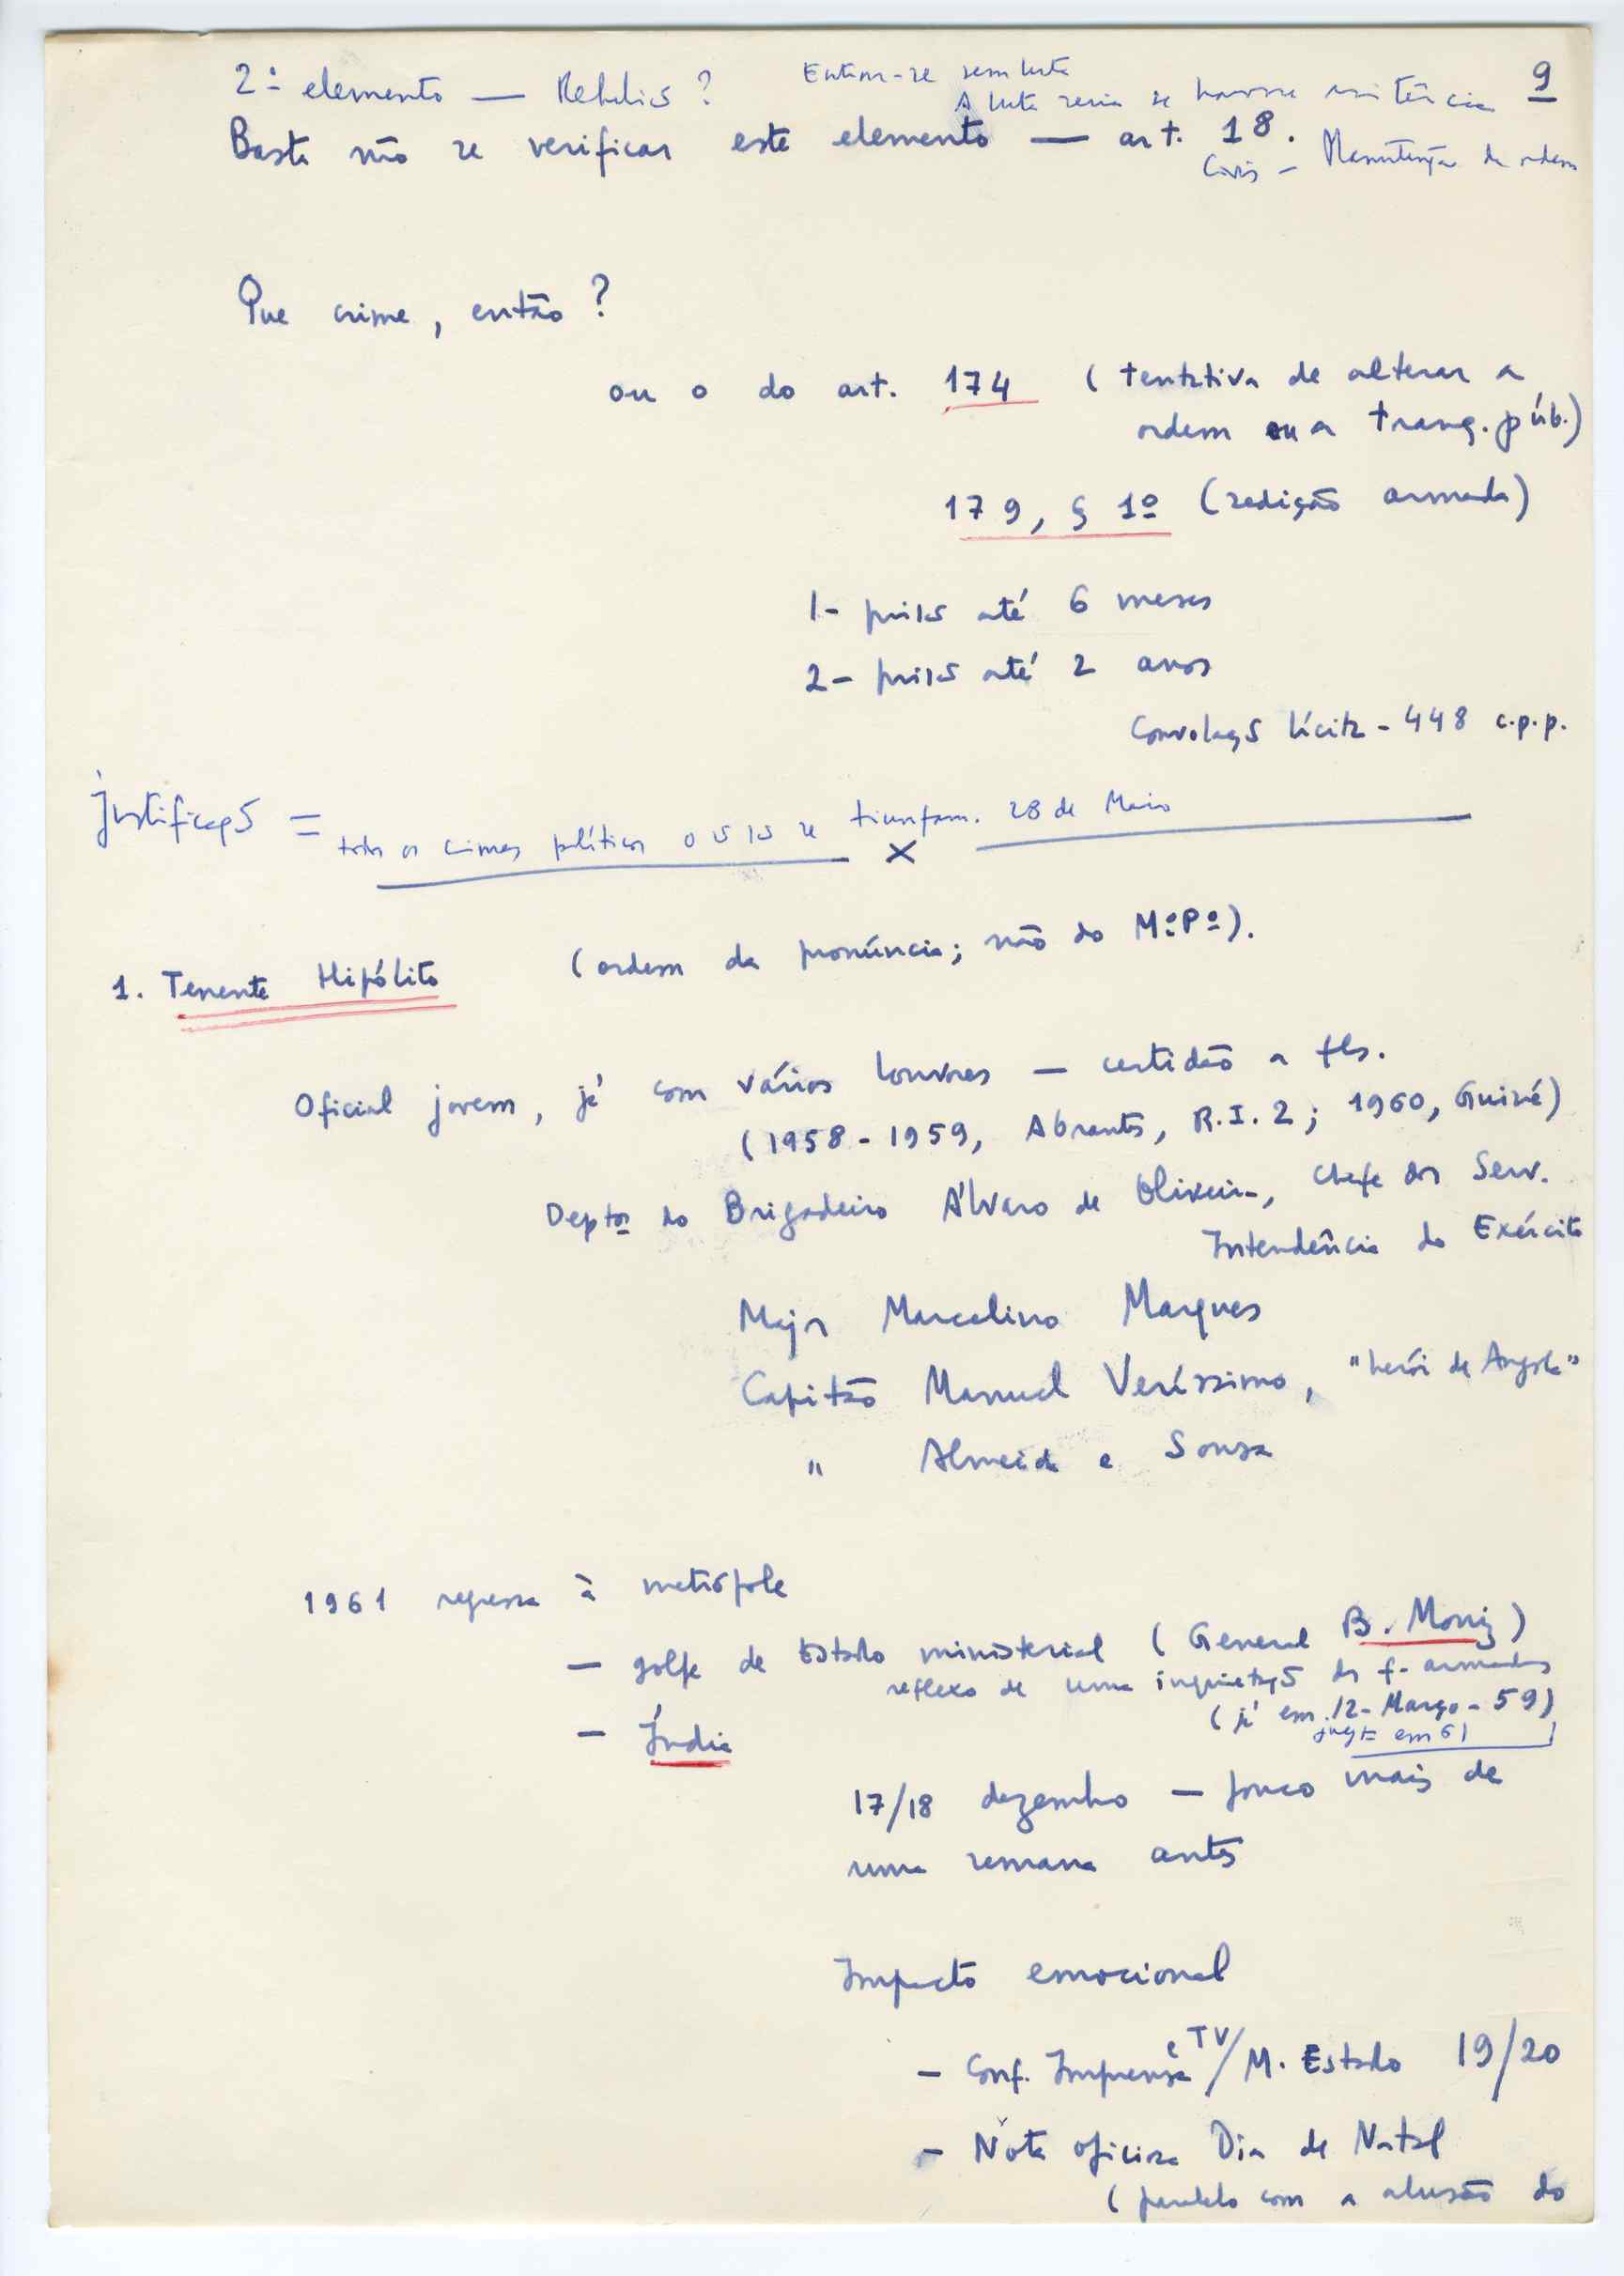 9
2º elemento — Rebelião?
Entrou-se sem luta
A luta seria se houvesse resistência
Basta não se verificar este elemento — art. 18.
Civis - Manutenção da ordem
Que crime, então?
ou o do art. 174 (tentativa de alterar a
ordem ou a tranq. púb.)
179, § 1º (sedição armada)
1- prisão até 6 meses
2- prisão até 2 anos
Convolação lícita - 448 c.p.p.
Justificação = todos os crimes políticos o são se triunfam. 28 de Maio
X
1. Tenente Hipólito (ordem da pronúncia; não do Mº Pº).
Oficial jovem, já com vários louvores — certidão a fls.
(1958-1959, Abrantes, R.I. 2; 1960, Guiné)
Deptos do Brigadeiro Álvaro de Oliveira, chefe dos Serv.
Intendência do Exército
Major Marcelino Marques
Capitão Manuel Veríssimo, "herói de Angola"
" Almeida e Sousa
1961 regressa à metrópole
— golpe de Estado ministerial (General B. Moniz)
reflexo de uma inquietação das f. armadas
(já em 12-Março-59)
em 61
— Índia
17/18 dezembro — pouco mais de
uma semana antes
Impacto emocional
— Conf. Imprensa e TV/M. Estado 19/20
— Nota oficiosa Dia de Natal
(paralelo com a alusão do